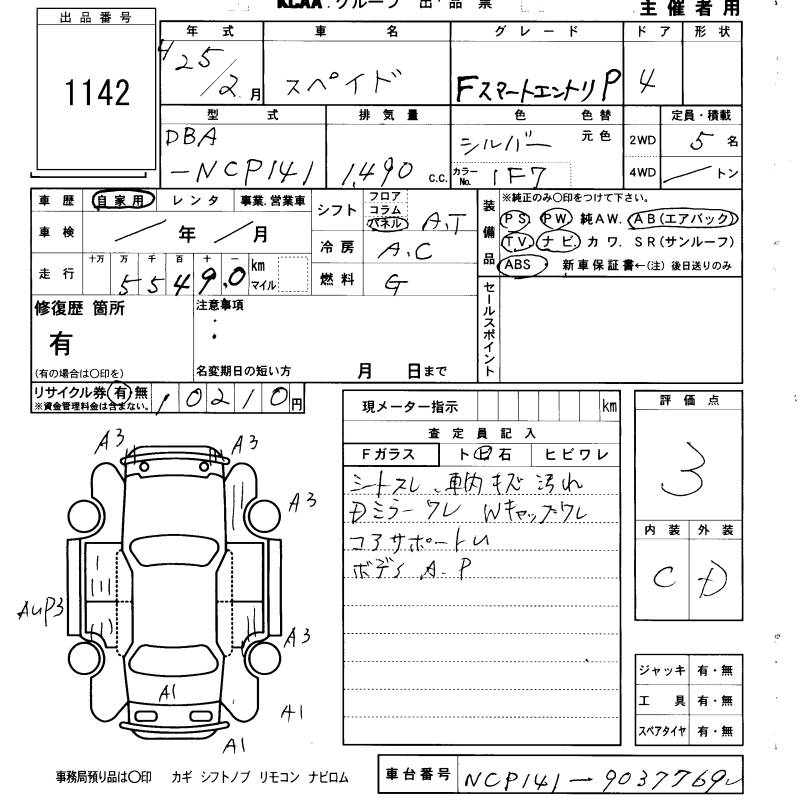 KCAA グループ 出品票
主催者用
出品番号
1142
年式 車名 グレード ドア 形状
H 25/2月 スペイド FスマートエントリP 4
型式 排気量 色 色替 定員・積載
DBA
-NCP141 1,490 c.c. シルバー 元色 2WD 5名
カラーNo. 1F7 4WD トン
車歴 自家用 レンタ 事業.営業車
シフト フロア コラム パネル A,T
装備品 ※純正のみ〇印をつけて下さい。
PS PW 純AW. AB(エアバック)
TV ナビ カワ. SR(サンルーフ)
ABS 新車保証書←(注)後日送りのみ
車検 / 年 / 月
冷房 A,C
走行 十万 万 千 百 十 一 55490 km マイル
燃料 G
修復歴 箇所
有
(有の場合は〇印を)
注意事項
名変期日の短い方 月 日まで
セールスポイント
リサイクル券 有 無 10210円
※資金管理料金は含まない。
現メーター指示 km
評価点
3
査定員記入
Fガラス ト日石 ヒビワレ
シートスレ、車内キズ 汚れ
Dミラーワレ Wキャップワレ
コアサポートU
ボデイ A.P
内装 外装
C D
A3 A3
A3
AUP3
A3
A1
A1
A1
ジャッキ 有・無
工具 有・無
スペアタイヤ 有・無
事務局預り品は〇印 カギ シフトノブ リモコン ナビロム
車台番号 NCP141-9037769